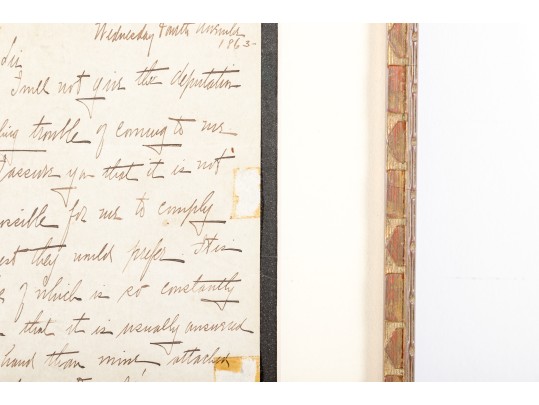 Wednesday
1963-
Sir
I will not give the deputation
trouble of coming to me
assure you that it is not
possible for me to comply
they would prefer. It is
of which is so constantly
that it is usually answered
hand than mine attached